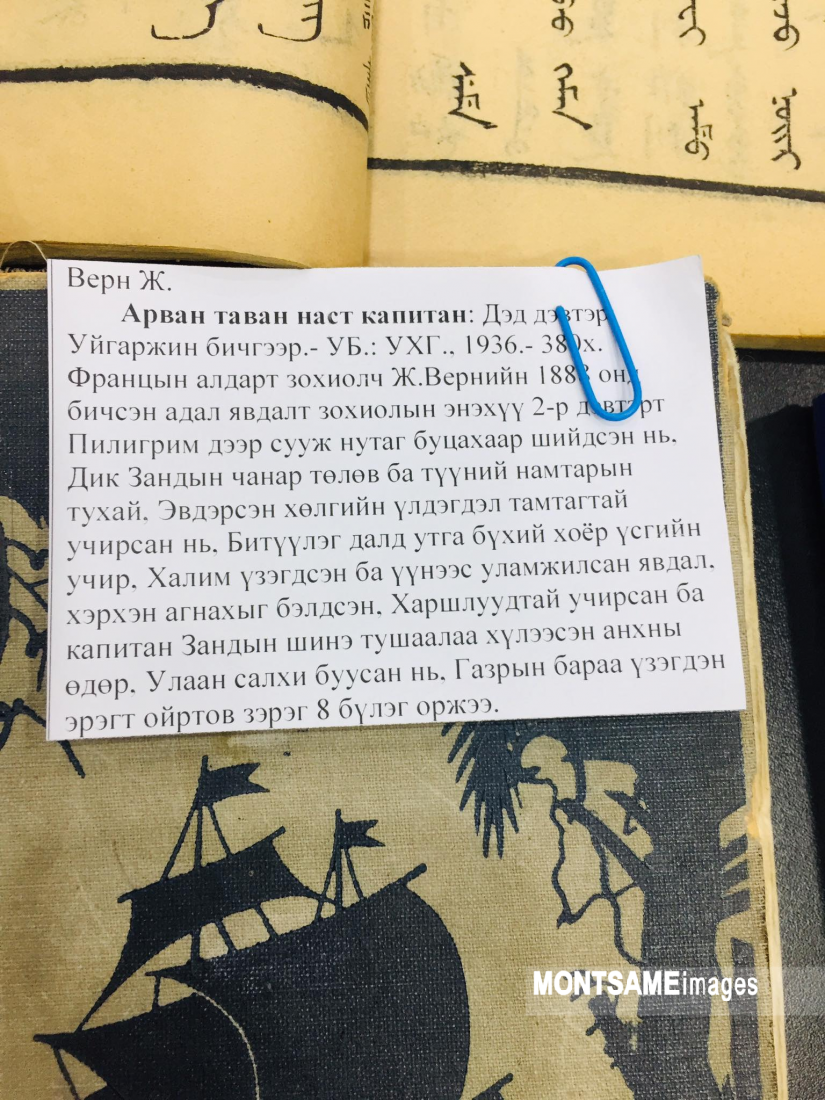 Верн Ж.
Арван таван наст капитан: Дэд дэвтэр
Уйгаржин бичгээр.- УБ.: УХГ., 1936.- 380х.
Францын алдарт зохиолч Ж.Вернийн 1888 онд
бичсэн адал явдалт зохиолын энэхүү 2-р дэвтэрт
Пилигрим дээр сууж нутаг буцахаар шийдсэн нь,
Дик Зандын чанар төлөв ба түүний намтарын
тухай, Эвдэрсэн хөлгийн үлдэгдэл тамтагтай
учирсан нь, Битүүлэг далд утга бүхий хоёр үсгийн
учир, Халим үзэгдсэн ба үүнээс уламжилсан явдал,
хэрхэн агнахыг бэлдсэн, Харшлуудтай учирсан ба
капитан Зандын шинэ тушаалаа хүлээсэн анхны
өдөр, Улаан салхи буусан нь, Газрын бараа үзэгдэн
эрэгт ойртов зэрэг 8 бүлэг оржээ.
MONTSAMEimages